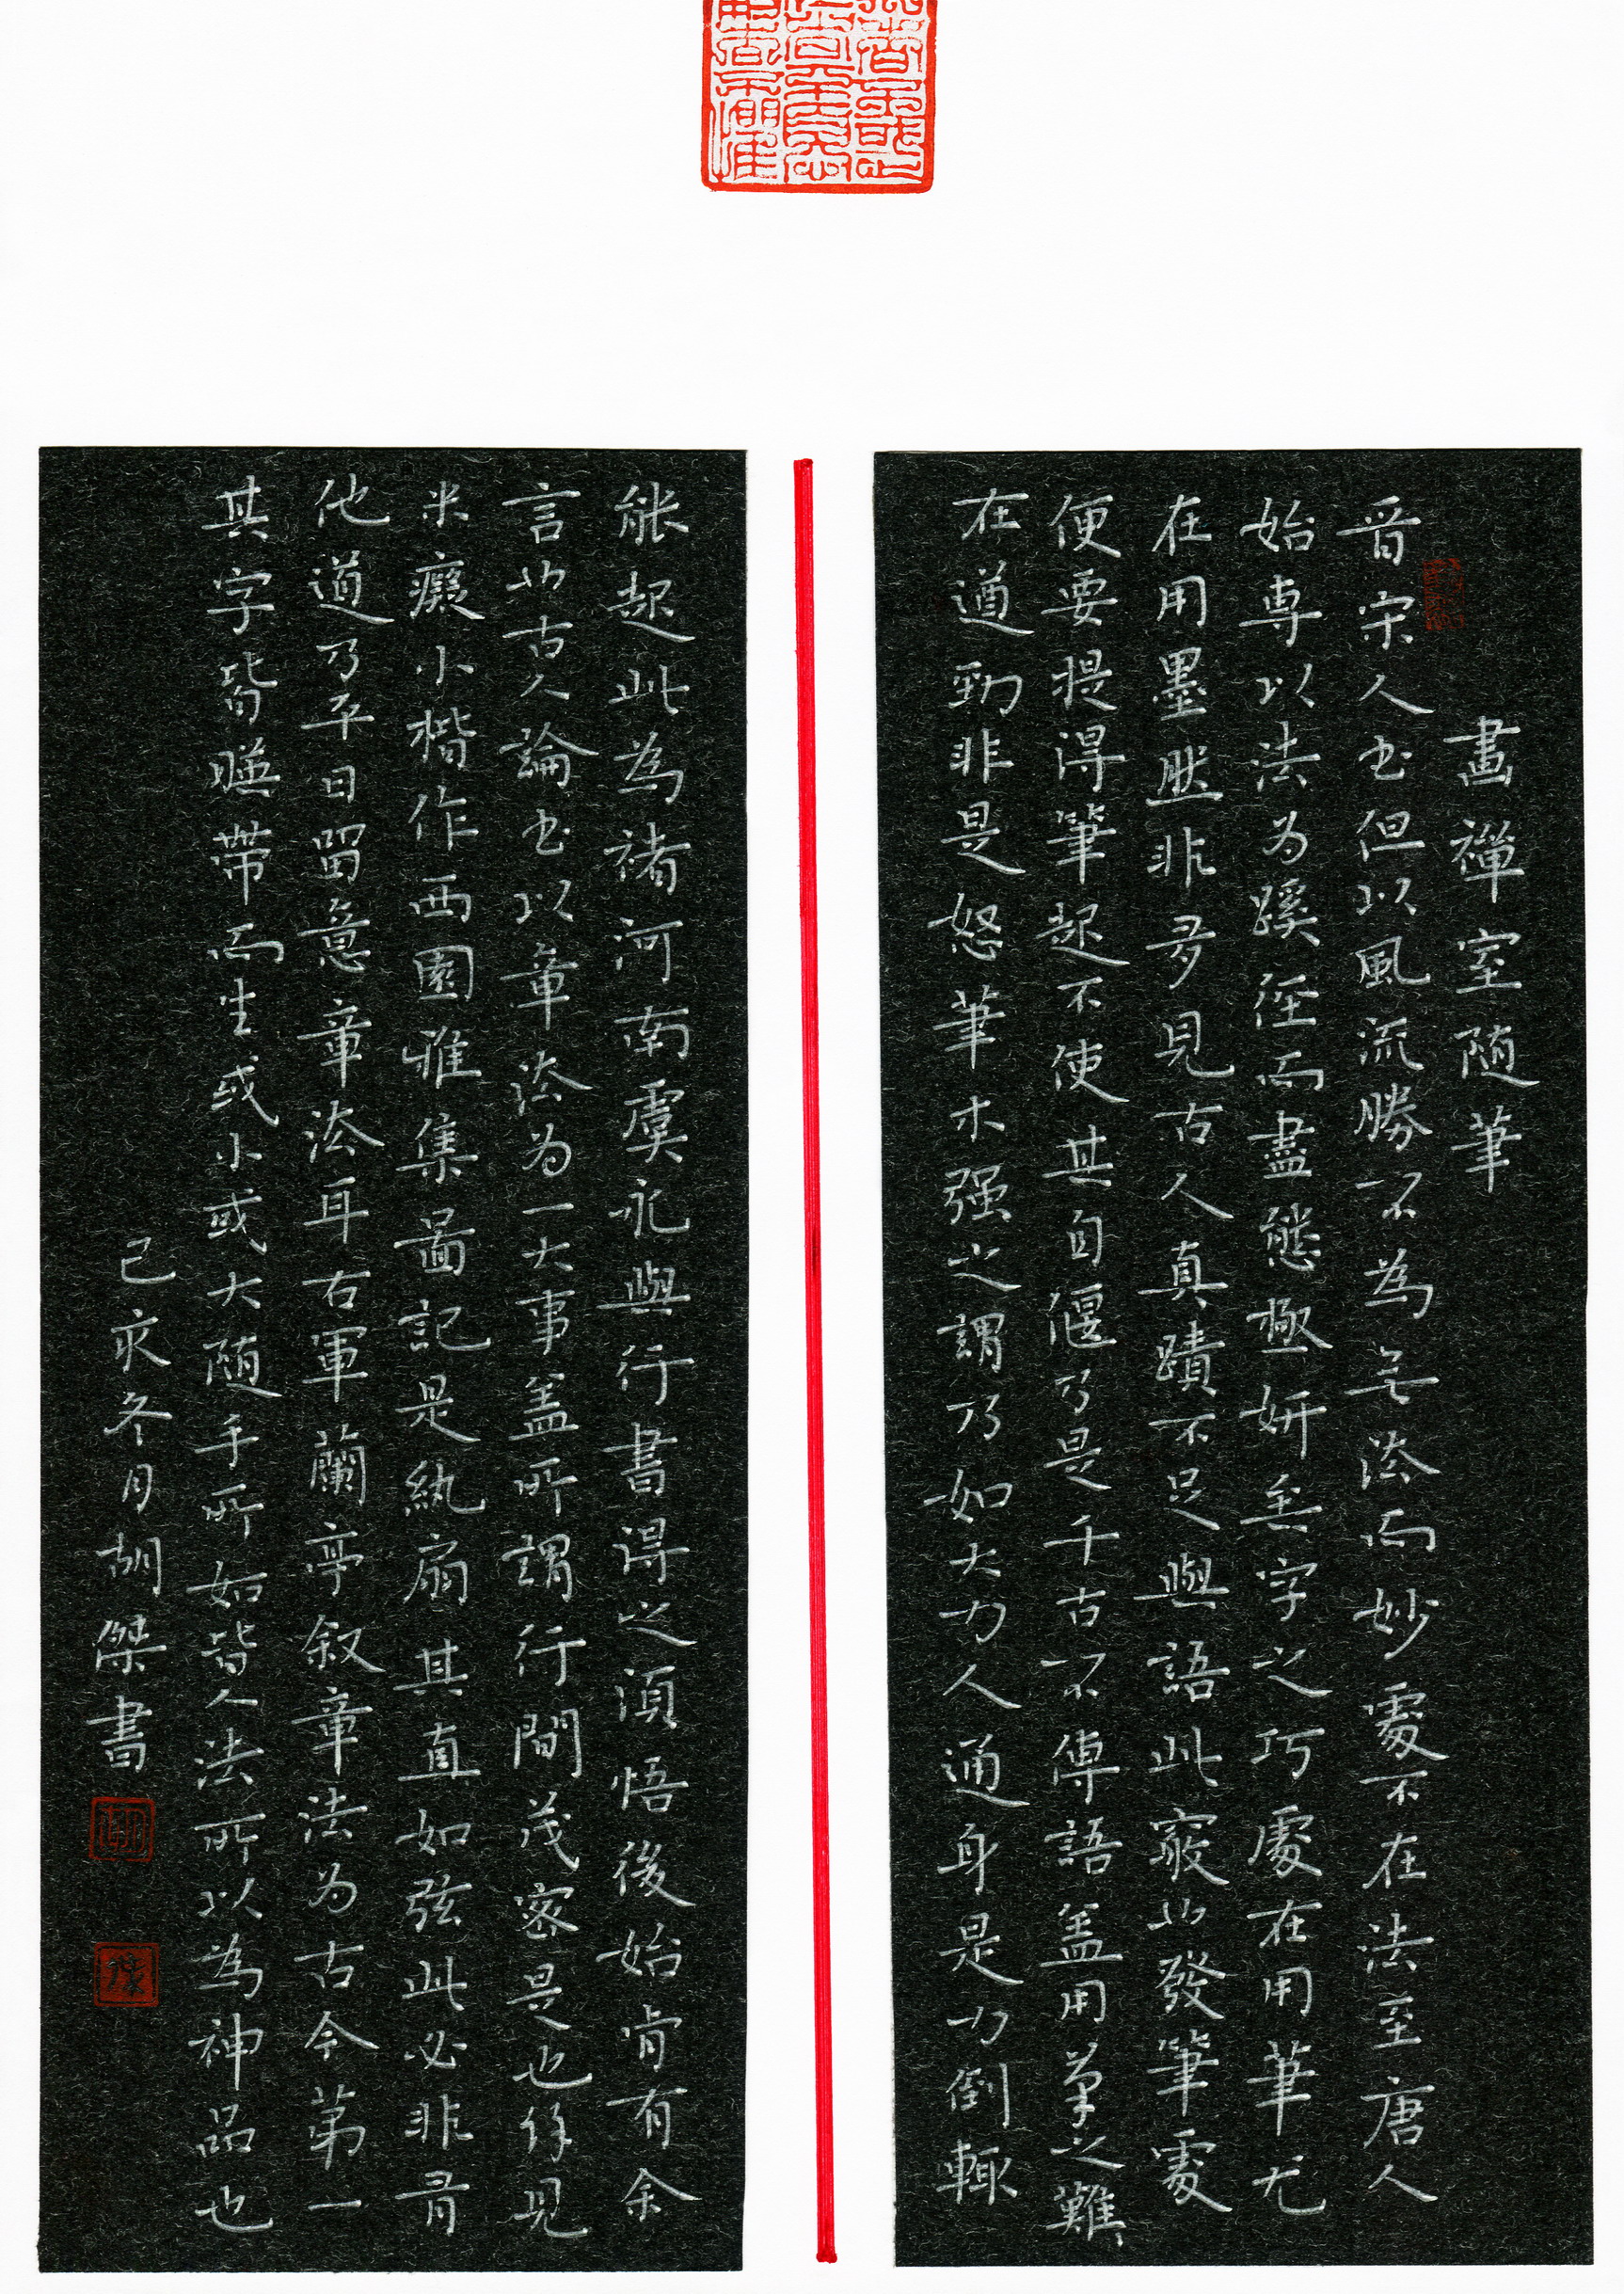 畫禪室隨筆
晉宋人书但以風流勝不為无法而妙處不在法至唐人
始專以法为蹊径而盡態極妍矣字之巧處在用筆尤
在用墨然非多見古人真蹟不足與語此竅也發筆處
便要提得筆起不使其自偃乃是千古不傳語盖用筆之難
在遒勁非是怒筆木强之謂乃如大力人通身是力倒輒
能起此為褚河南虞永興行書得之須悟後始肯有余
言也古人論书以章法为一大事盖所謂行間茂密是也余見
米癡小楷作西園雅集啚記是紈扇其直如弦此必非有
他道乃平日留意章法耳右軍蘭亭叙章法为古今第一
其字皆暎帶而生或小或大随手所如皆入法所以為神品也
己亥冬月胡傑書